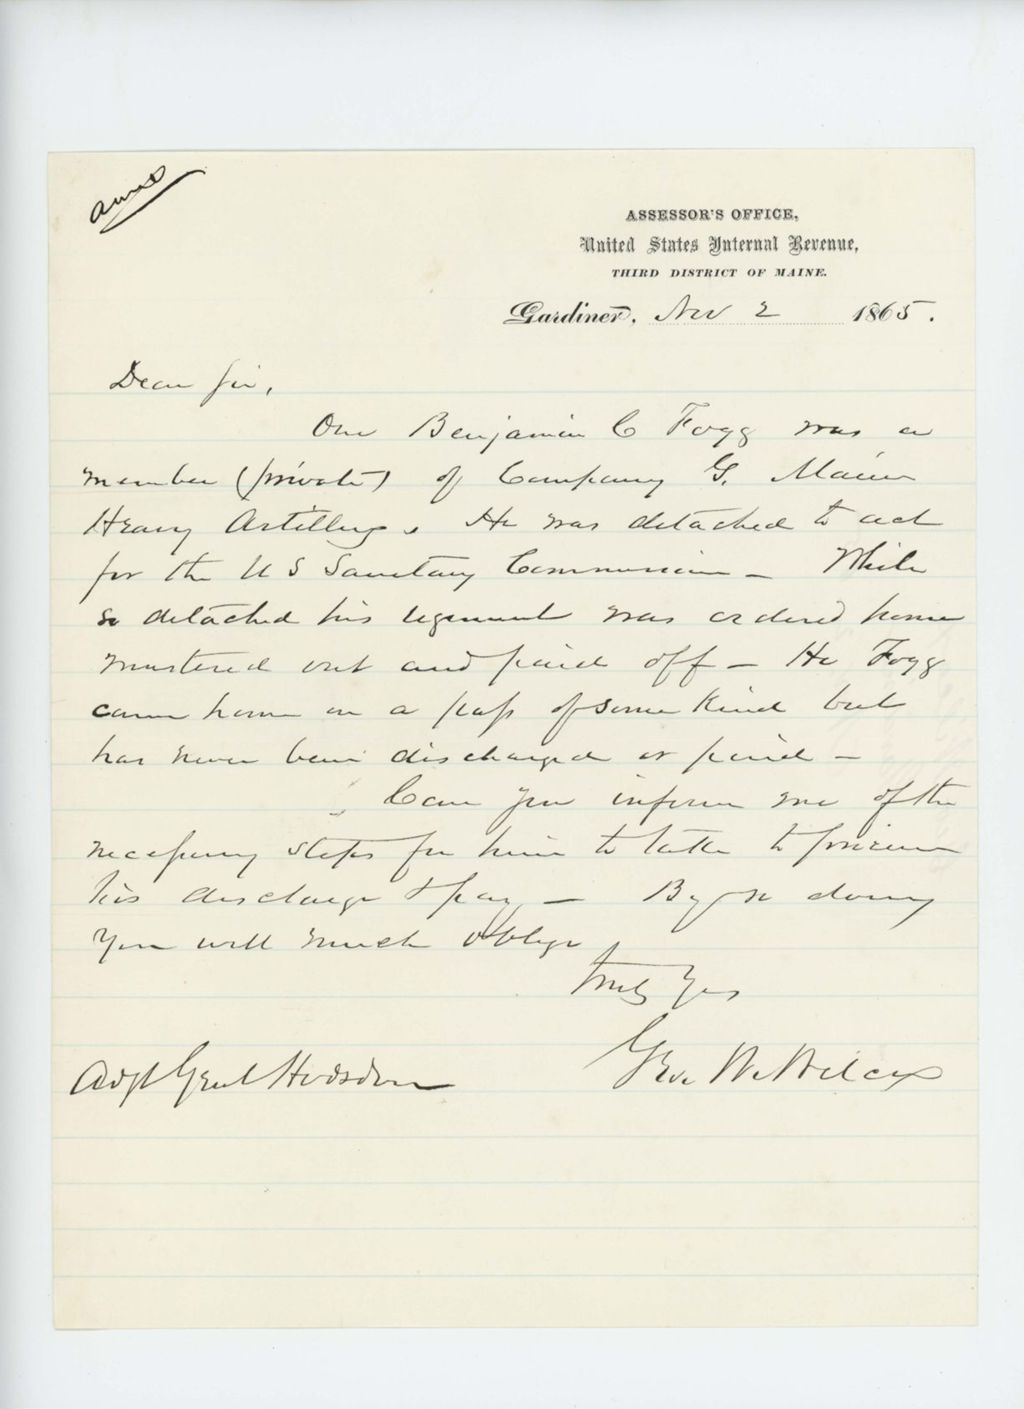 ansd
ASSESSOR'S OFFICE,
United States Internal Revenue,
THIRD DISTRICT OF MAINE.
Gardiner, Nov 2 1865.
Dear Sir,
One Benjamin C Fogg was a
member (private) of Company G. Maine
Heavy Artillery. He was detached to act
for the U S Sanitary Commission - While
so detached his regiment was ordered home
mustered out and paid off - He Fogg
came home on a pass of some kind but
has never been discharged or paid -
Can you inform me of the
necessary steps for him to take to procure
his discharge & pay - By so doing
you will much oblige
Truly Yrs
Geo. W. Wilcox
Adjt Genl Hodsdon